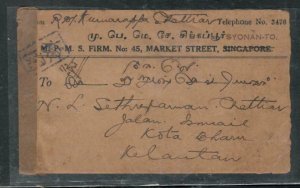 from R.M. Kumarappa Chettiar Telephone No. 2476
மு. பெ. மெ. சே. சிங்கப்பூர் SYONAN-TO.
M. P. M. S. FIRM. No: 45, MARKET STREET, SINGAPORE.
To
N. L. Sethuraman Chettiar
Jalan Ismail
Kota Bharu
Kelantan